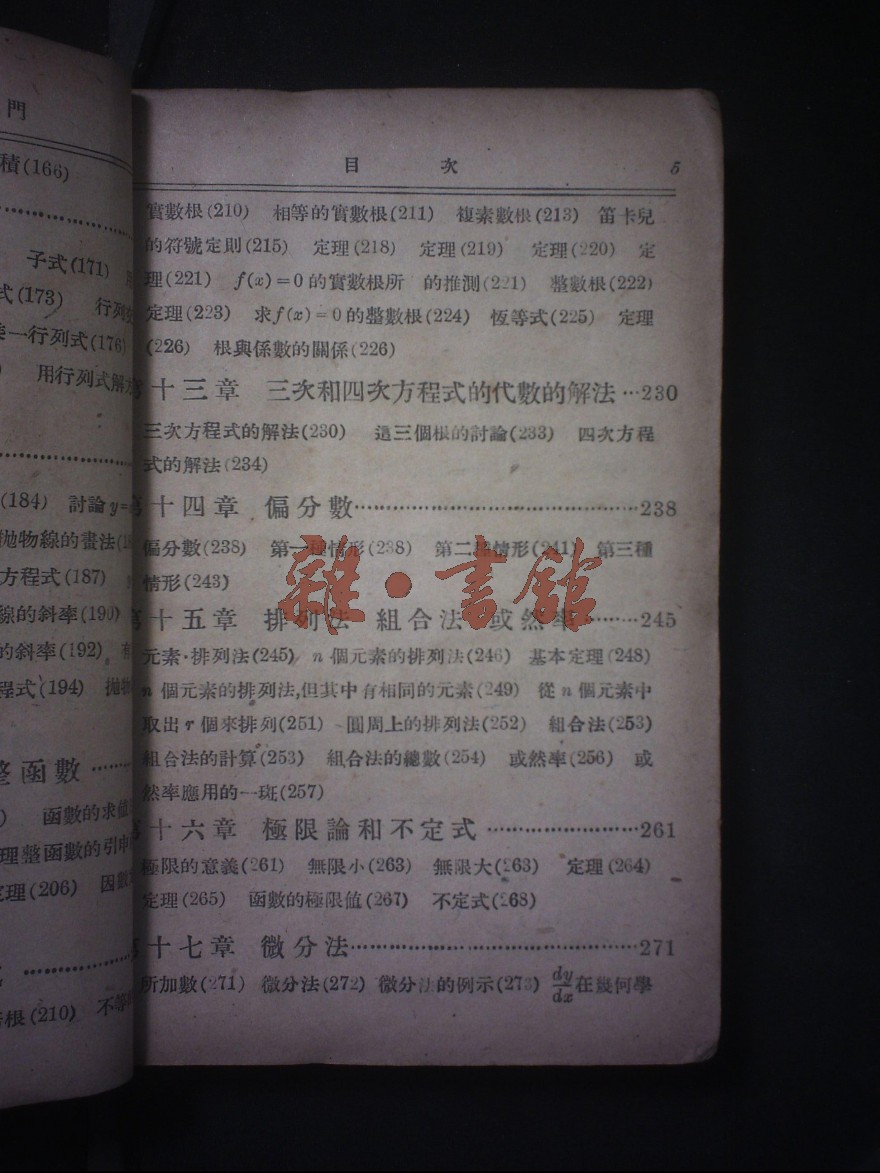 門
積(166)
子式(171)
式(173) 行列
一行列式(176)
用行列式解方
(184) 討論y=
抛物線的畫法
方程式(187)
線的斜率(190)
的斜率(192) 有
程式(194) 抛物
整函數
函數的求值
理整函數的引申
定理(206) 因數
根(210) 不等
目 次 5
實數根(210) 相等的實數根(211) 複素數根(213) 笛卡兒
的符號定則(215) 定理(218) 定理(219) 定理(220) 定
理(221) f(x)=0的實數根所 的推測(221) 整數根(222)
定理(223) 求f(x)=0的整數根(224) 恆等式(225) 定理
(226) 根與係數的關係(226)
第十三章 三次和四次方程式的代數的解法…230
三次方程式的解法(230) 這三個根的討論(233) 四次方程
式的解法(234)
第十四章 偏分數……238
偏分數(238) 第一種情形(238) 第二種情形(241) 第三種
情形(243)
雜·書館
第十五章 排列法 組合法 或然率……245
元素·排列法(245) n個元素的排列法(246) 基本定理(248)
n個元素的排列法,但其中有相同的元素(249) 從n個元素中
取出r個來排列(251) 圓周上的排列法(252) 組合法(253)
組合法的計算(253) 組合法的總數(254) 或然率(256) 或
然率應用的一斑(257)
第十六章 極限論和不定式……261
極限的意義(261) 無限小(263) 無限大(263) 定理(264)
定理(265) 函數的極限值(267) 不定式(268)
第十七章 微分法……271
所加數(271) 微分法(272) 微分法的例示(273) dy/dx在幾何學